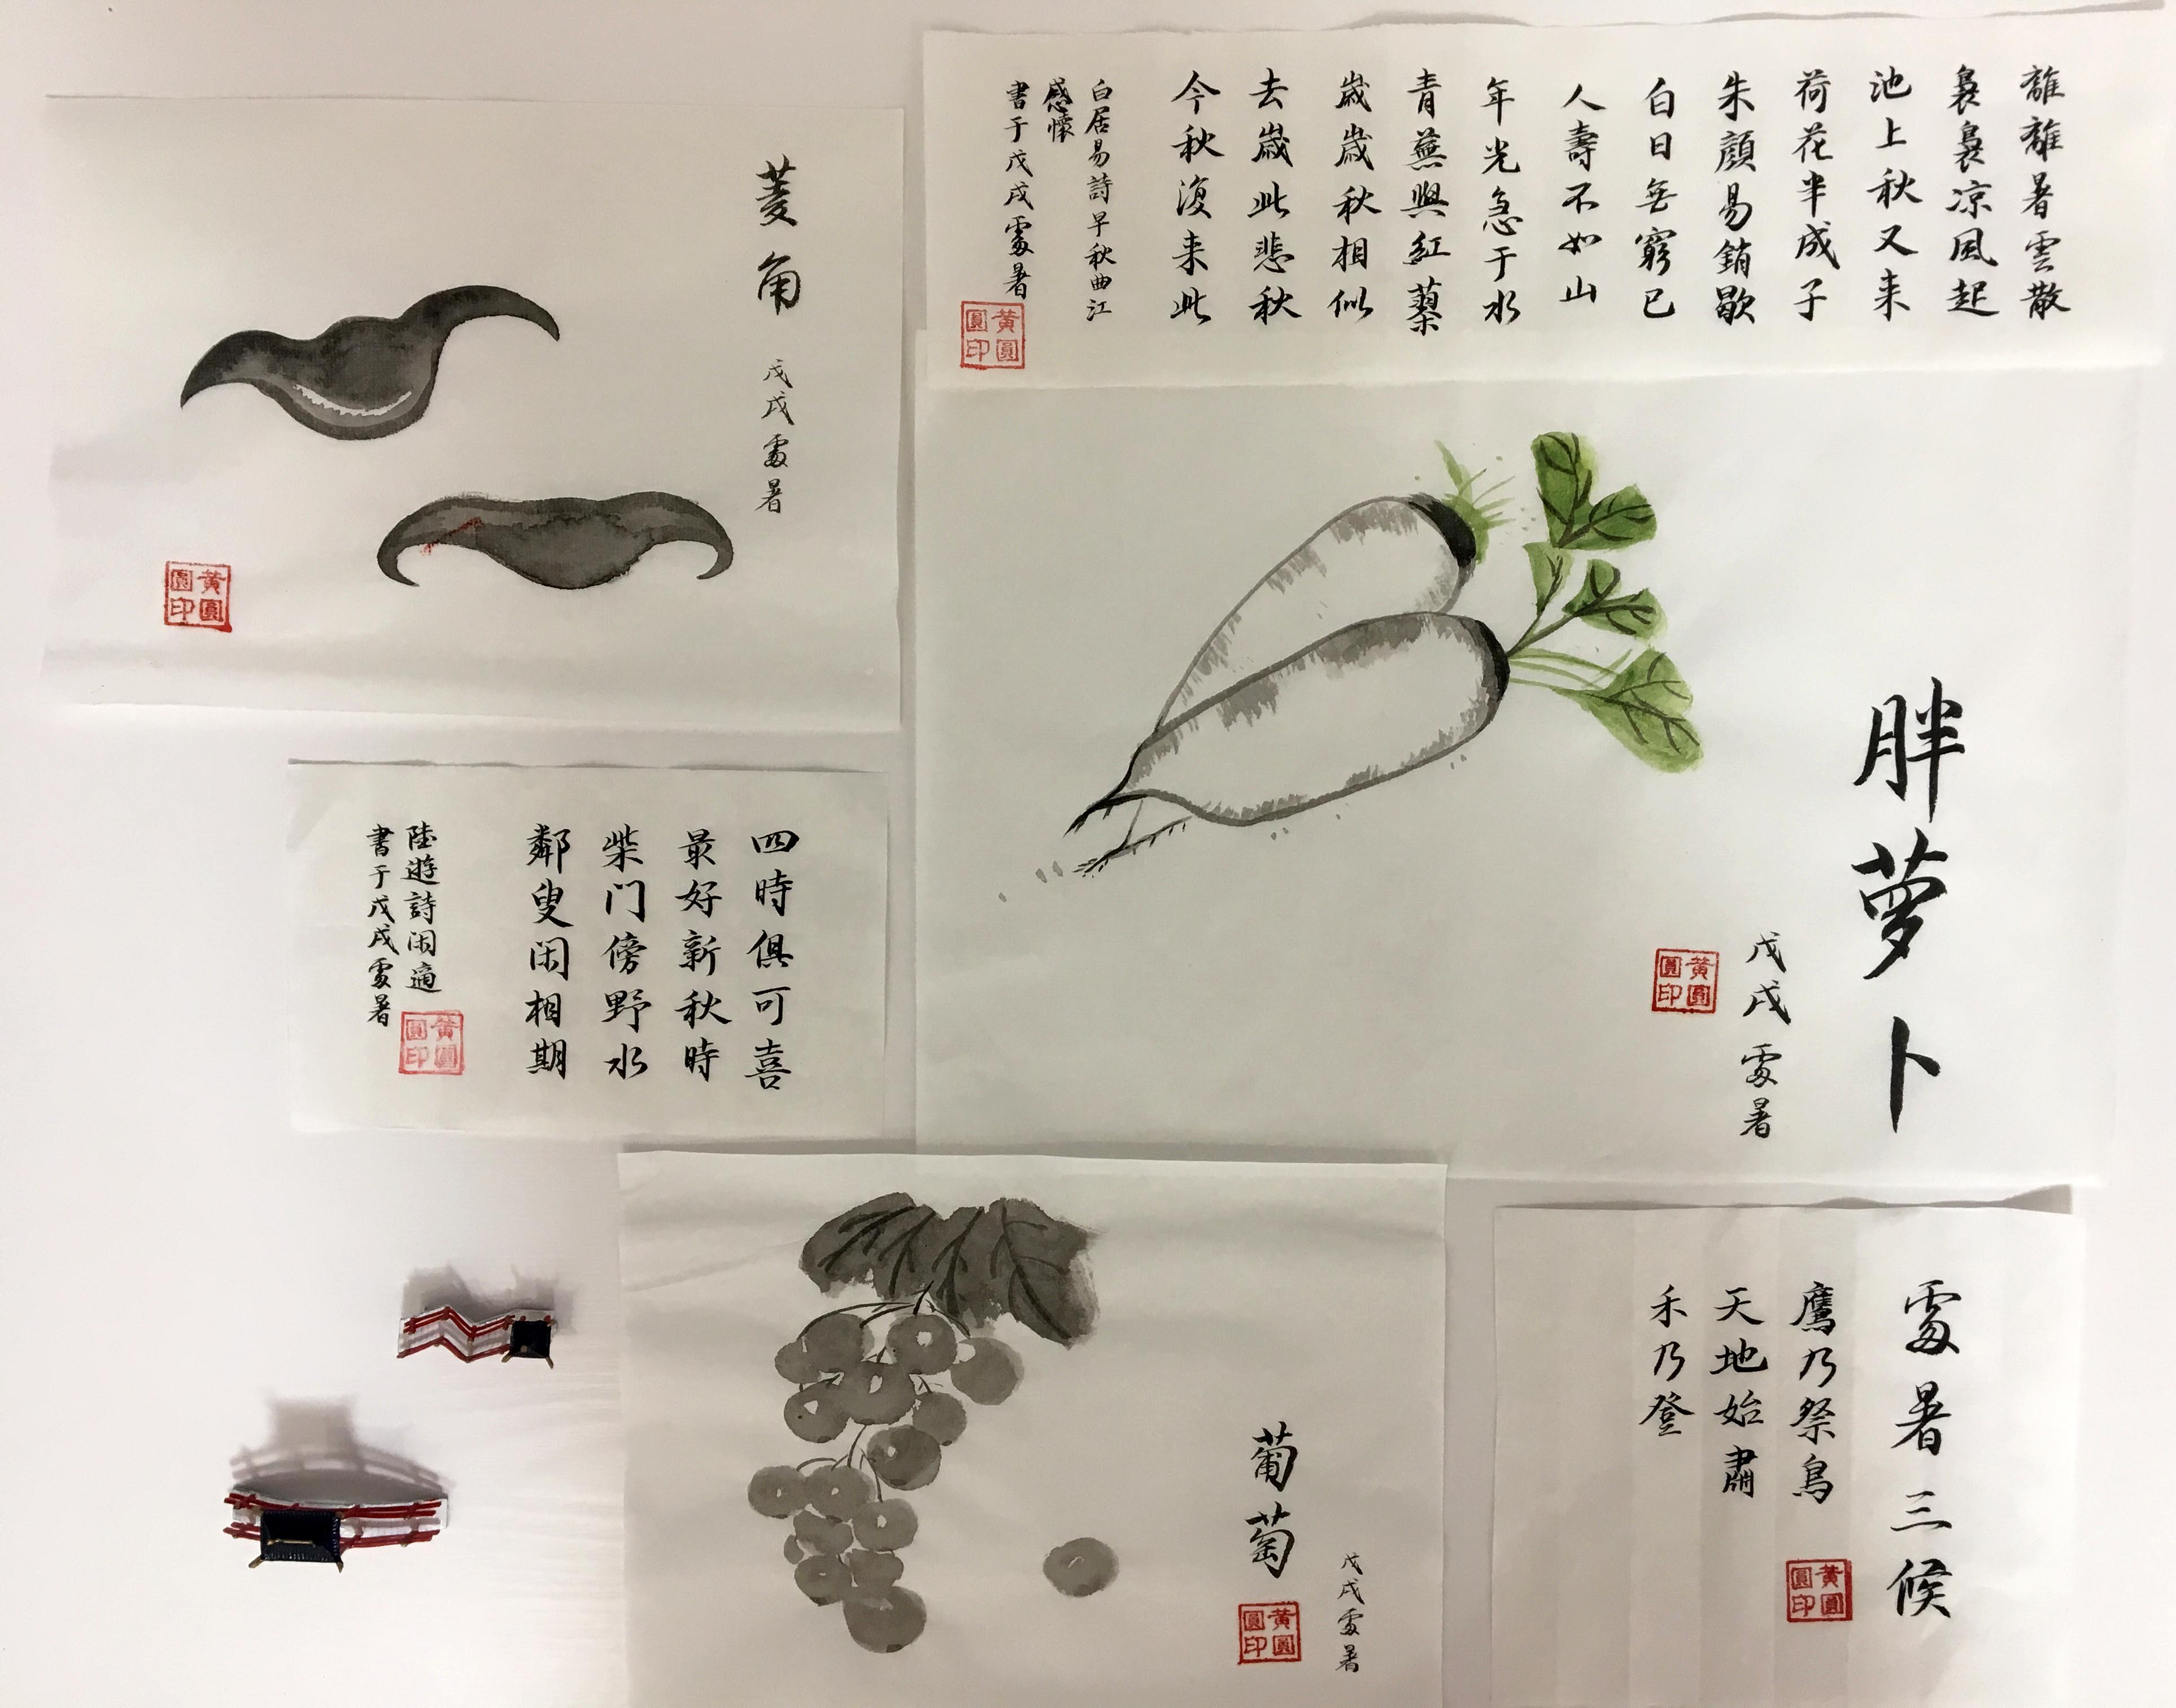 離離暑雲散
裊裊凉風起
池上秋又来
荷花半成子
朱顔易銷歇
白日無窮已
人壽不如山
年光急于水
青蕪與紅蓼
歲歲秋相似
去歲此悲秋
今秋復来此
白居易詩早秋曲江
感懷
書于戊戌處暑
黃圓
圓印
菱角
戊戌處暑
黃圓
圓印
胖萝卜
戊戌處暑
黃圓
圓印
四時俱可喜
最好新秋時
柴门傍野水
鄰叟闲相期
陸遊詩闲適
書于戊戌處暑
黃圓
圓印
葡萄
戊戌處暑
黃圓
圓印
處暑三候
鷹乃祭鳥
天地始肅
禾乃登
黃圓
圓印